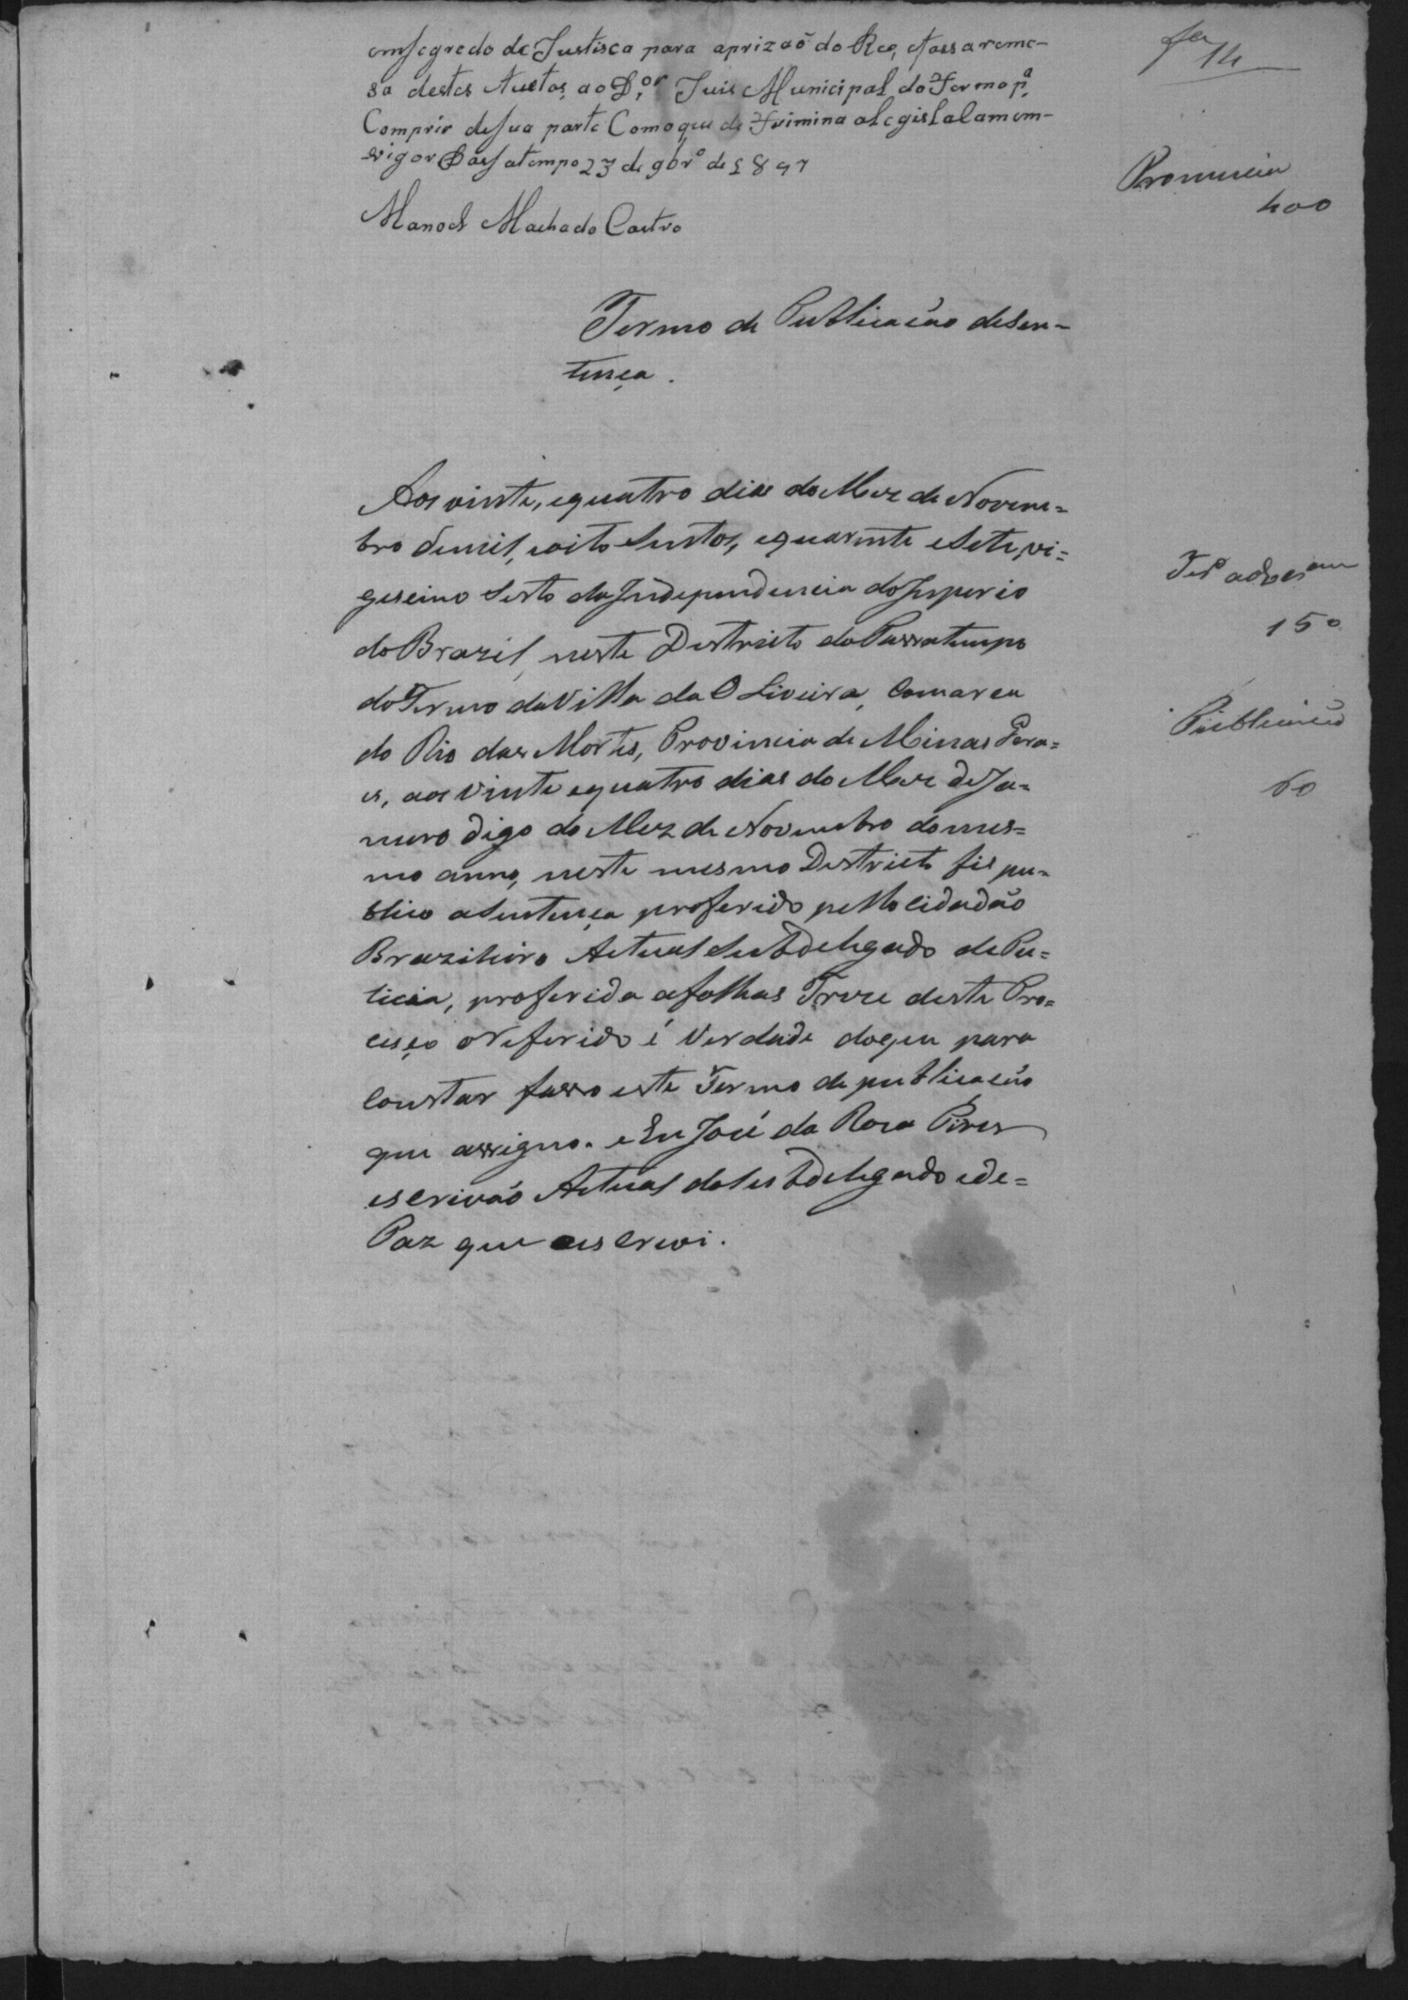 emsegredo de Justisca para aprizaõ do Reo, efassa reme-
sa destes Auctos, ao D.or Juis Municipal do Termo p.a
Comprir desua parte Comoque de Trimina aLegislalamem-
vigor Passatempo 23 de 9br.o de 1847
Manoel Machado Castro
Termo de Publicacão desen-
tença.
Aos vinte, equatro dias do Mez de Novem=
bro demil, eoito sentos, equarenta esete, vi=
gesimo sesto da Independencia do Imperio
do Brazil, neste Destricto do Passatempo
do Termo da Villa da OLiveira, Comarca
do Rio das Mortes, Provincia de Minas Gera=
es, aos vinte equatro dias do Mez de Ja=
neiro digo do Mez de Novembro domes=
mo anno, neste mesmo Destricto fis pu=
blico aSentença proferido pello cidadão
Brazileiro Actual Subdelegado de Pu=
licia, proferida afolhas Treze deste Pro=
cesço oreferido é Verdade doque para
Constar fasso este Termo de publicacão
que assigno. e Eu José da Roza Pires
escrivão Actual do Subdelegado ede=
Paz que escrevi.
fl
14
Pronuncia
400
150
Publicacão
60